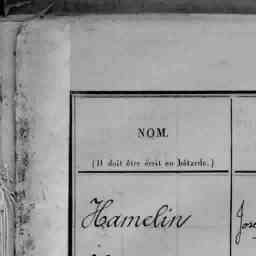 NOM.
(Il doit être écrit en bâtarde.)
Hamelin